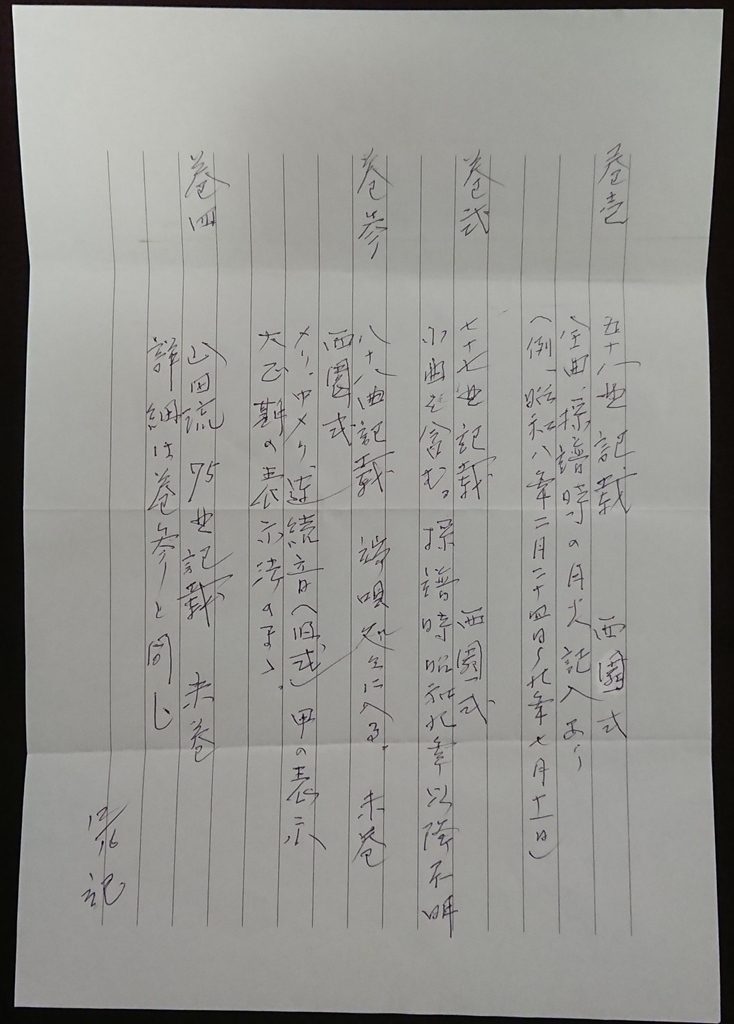 巻壱
五十八曲 記載 西園式
全曲、採譜時の月火記入あり
(例、昭和八年二月二十四日〜九年七月十一日)
巻弐
七十七曲 記載 西園式
小曲を含む。採譜時昭和九年以降不明
巻参
八十八曲記載 端唄処々に入る。赤巻
西園式
メリ、中メリ、連続音(旧式) 甲の表示
大正期の表示法のまゝ。
巻四
山田流 75曲記載 赤巻
詳細は巻参と同じ
記